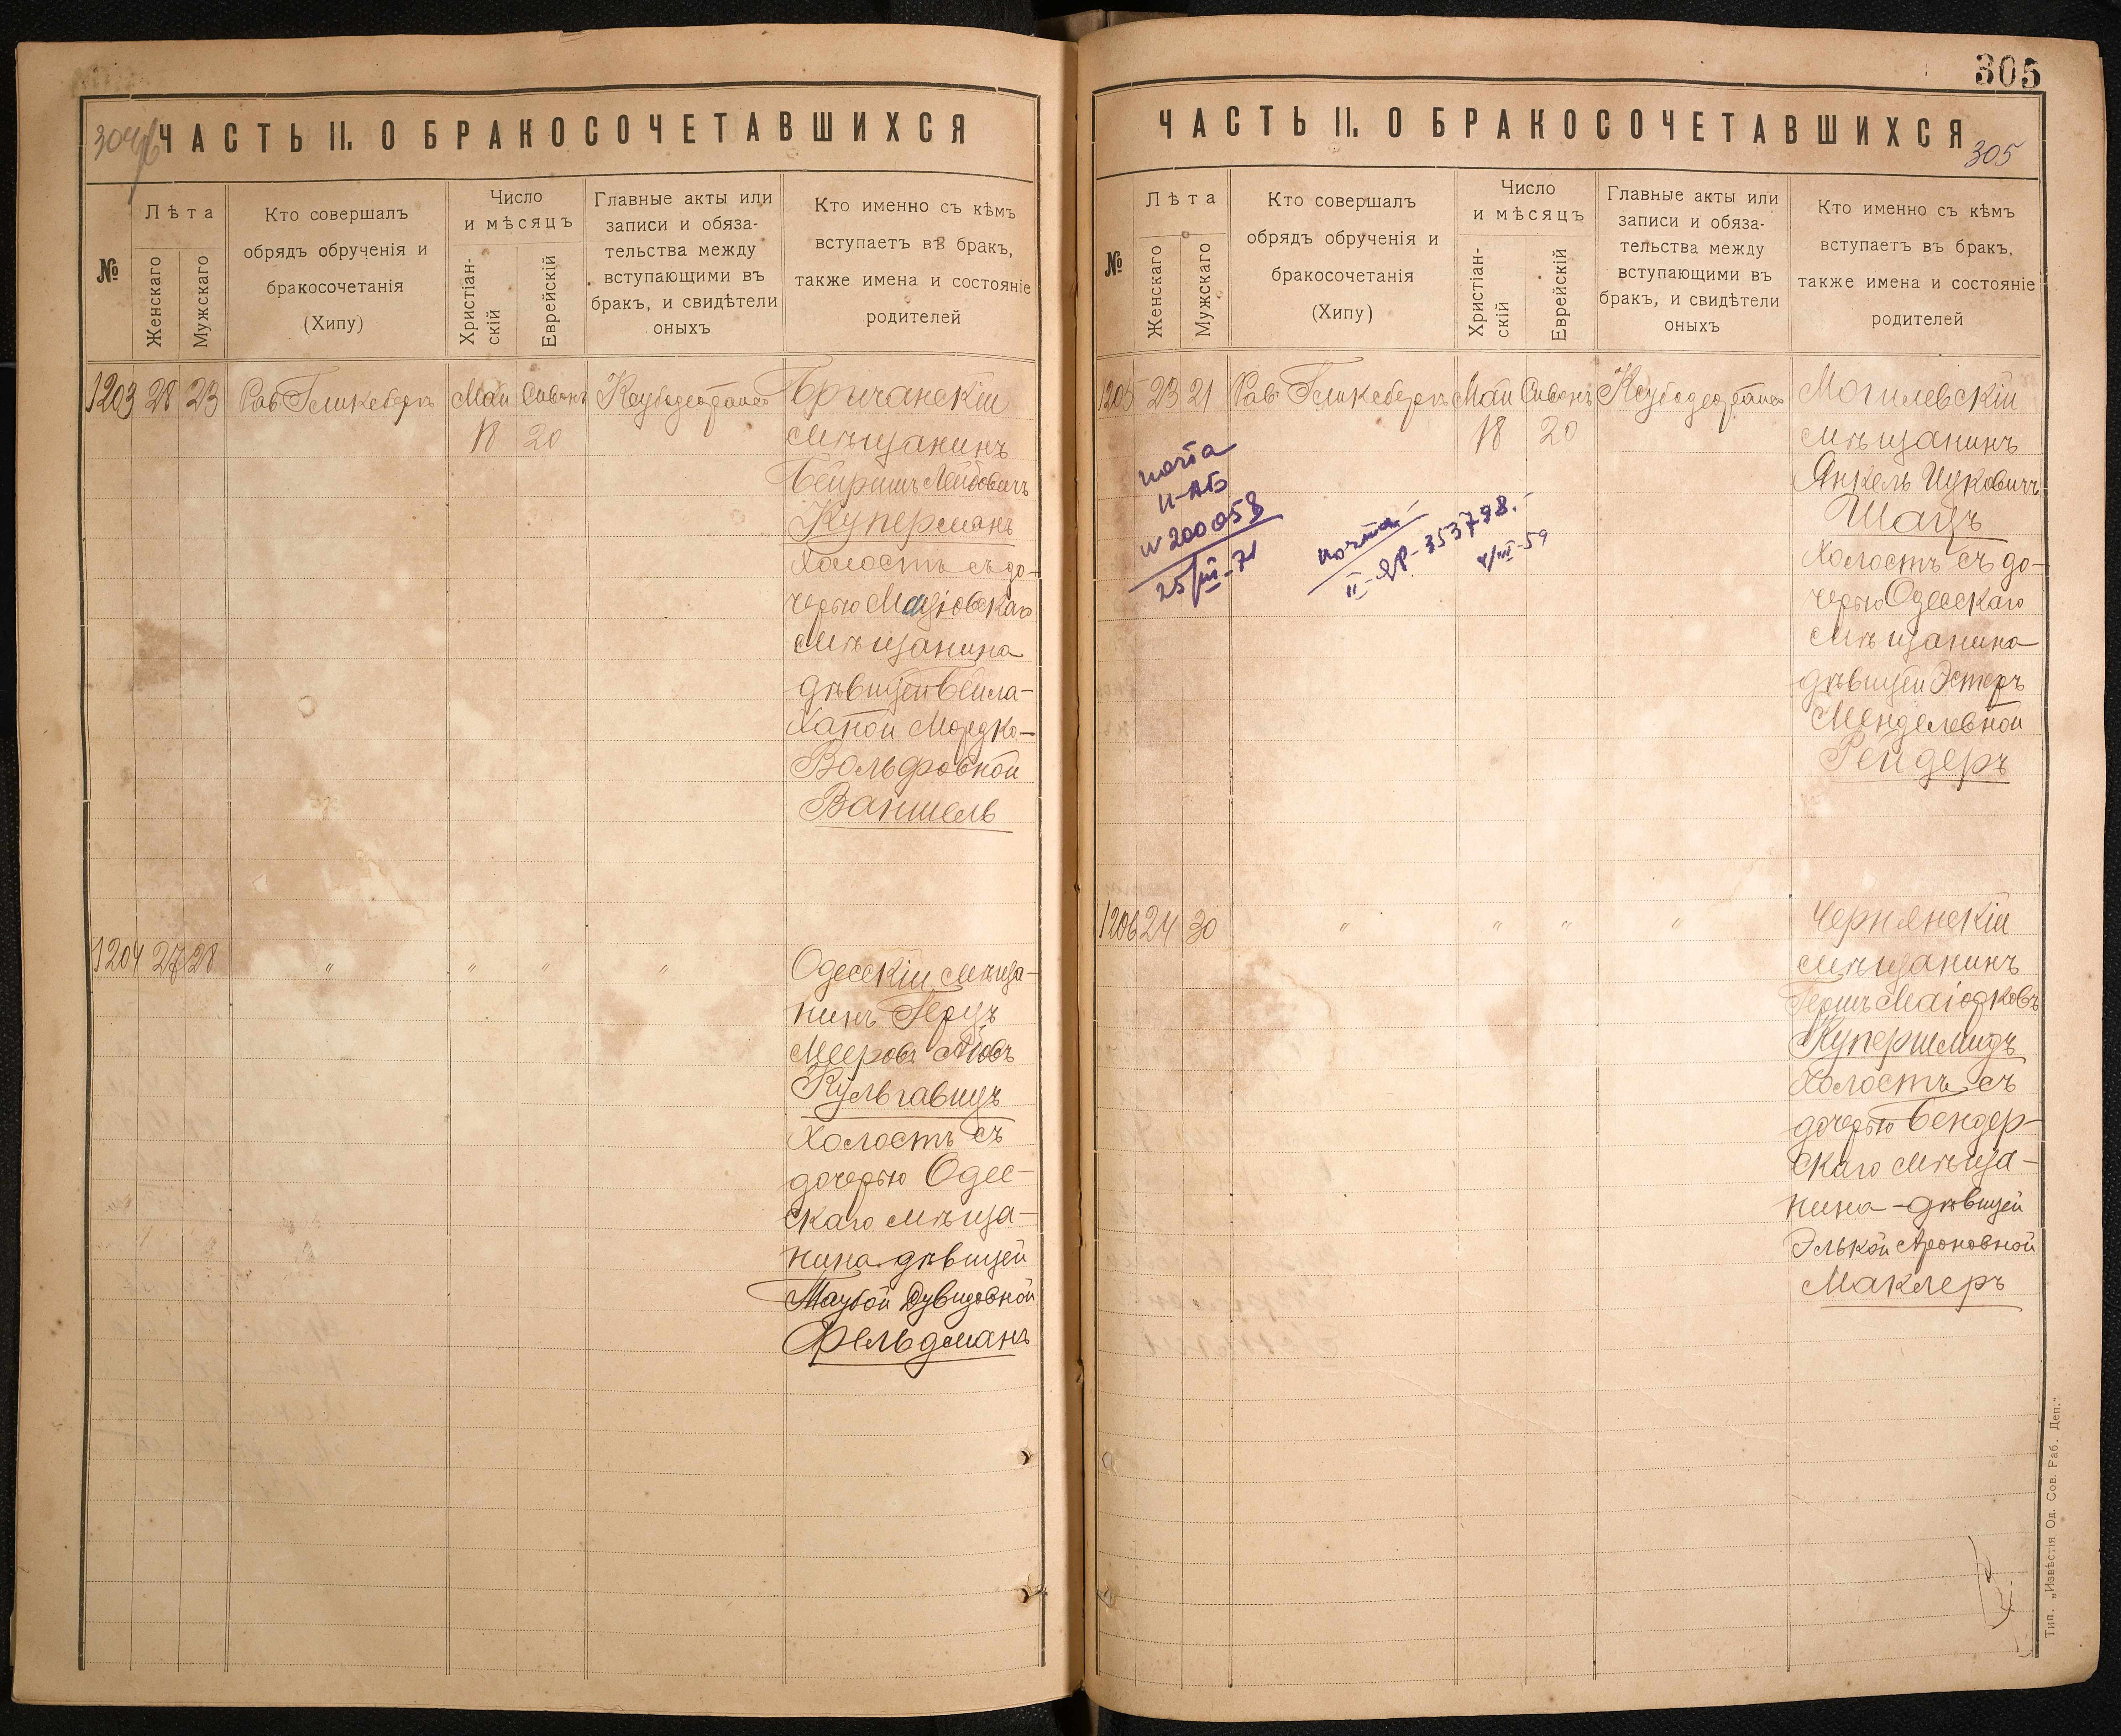 304 об
ЧАСТЬ II. О БРАКОСОЧЕТАВШИХСЯ
№
Лѣта
Женскаго
Мужскаго
Кто совершалъ
обрядъ обрученія и
бракосочетанія
(Хипу)
Число
и мѣсяцъ
Христіан-
скій
Еврейскій
Главные акты или
записи и обяза-
тельства между
вступающими въ
бракъ, и свидѣтели
оныхъ
Кто именно съ кѣмъ
вступаетъ въ бракъ,
также имена и состояніе
родителей
1203 28 23 Рав Гликсбергъ Май Сивонъ Бричанскій
18 20 мѣщанинъ
Бейришъ Лейбовичъ
Куперманъ
Холостъ съ до-
черью
мѣщанина
дѣвицей Бейла-
Ханой Мордко-
Вольфовной
Ваншель
1204 27 28 " " " " Одесскій мѣща-
нинъ Герцъ
Мееровъ
Кульгавицъ
Холостъ съ
дочерью Одес-
скаго мѣща-
нина дѣвицей
Таубой Дувидовной
Фельдманъ
305
ЧАСТЬ II. О БРАКОСОЧЕТАВШИХСЯ
305
№
Лѣта
Женскаго
Мужскаго
Кто совершалъ
обрядъ обрученія и
бракосочетанія
(Хипу)
Число
и мѣсяцъ
Христіан-
скій
Еврейскій
Главные акты или
записи и обяза-
тельства между
вступающими въ
бракъ, и свидѣтели
оныхъ
Кто именно съ кѣмъ
вступаетъ въ бракъ,
также имена и состояніе
родителей
1205 23 21 Рав Гликсбергъ Май Сивонъ Могилевскій
18 20 мѣщанинъ
Янкель Ицковичъ
Шацъ
Холостъ съ до-
черью Одесскаго
мѣщанина
дѣвицей Эстеръ
Менделевной
Рейдеръ
почта
II-АБ
N 200058
25/III-71
почта.
II-ЯР-353798.
III-59
1206 24 30 " " " " Чернянскій
мѣщанинъ
Гершъ
Купершмидъ
Холостъ съ
дочерью Бендер-
скаго мѣща-
нина - дѣвицей
Элькой Ароновной
Маклеръ
Тип. „Извѣстія Од. Сов. Раб. Деп."